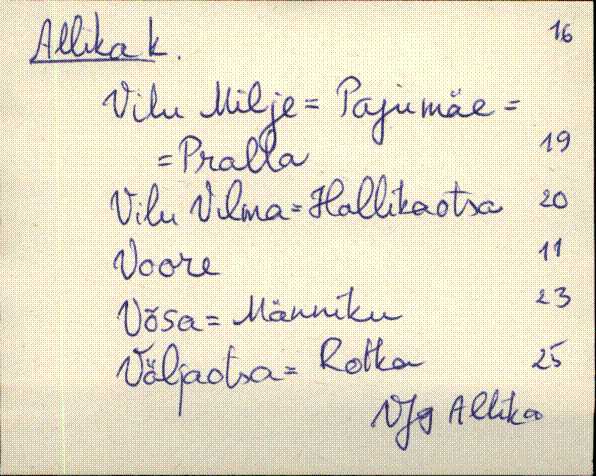 Allika k. 16
Vilu Milje = Pajumäe =
= Pralla 19
Vilu Vilma = Hallikaotsa 20
Voore 11
Võsa = Männiku 23
Väljaotsa = Rotka 25
VJg Allika